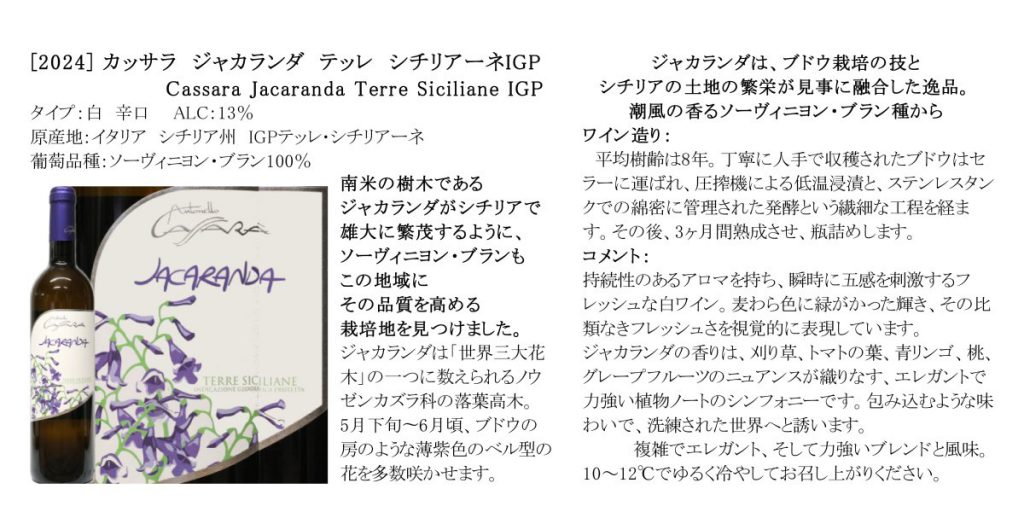 [2024] カッサラ ジャカランダ テッレ シチリアーネIGP
Cassara Jacaranda Terre Siciliane IGP
タイプ：白 辛口 ALC：13%
原産地：イタリア シチリア州 IGPテッレ・シチリアーネ
葡萄品種：ソーヴィニヨン・ブラン100%
Antonello
Cassara
JACARANDA
TERRE SICILIANE
INDICAZIONE GEOGRAFICA PROTETTA
Cassara
JACARANDA
南米の樹木である
ジャカランダがシチリアで
雄大に繁茂するように、
ソーヴィニヨン・ブランも
この地域に
その品質を高める
栽培地を見つけました。
ジャカランダは「世界三大花
木」の一つに数えられるノウ
ゼンカズラ科の落葉高木。
5月下旬～6月頃、ブドウの
房のような薄紫色のベル型の
花を多数咲かせます。
ジャカランダは、ブドウ栽培の技と
シチリアの土地の繁栄が見事に融合した逸品。
潮風の香るソーヴィニヨン・ブラン種から
ワイン造り：
平均樹齢は8年。丁寧に人手で収穫されたブドウはセ
ラーに運ばれ、圧搾機による低温浸漬と、ステンレスタン
クでの綿密に管理された発酵という繊細な工程を経ま
す。その後、3ヶ月間熟成させ、瓶詰めします。
コメント：
持続性のあるアロマを持ち、瞬時に五感を刺激するフ
レッシュな白ワイン。麦わら色に緑がかった輝き、その比
類なきフレッシュさを視覚的に表現しています。
ジャカランダの香りは、刈り草、トマトの葉、青リンゴ、桃、
グレープフルーツのニュアンスが織りなす、エレガントで
力強い植物ノートのシンフォニーです。包み込むような味
わいで、洗練された世界へと誘います。
複雑でエレガント、そして力強いブレンドと風味。
10～12℃でゆるく冷やしてお召し上がりください。